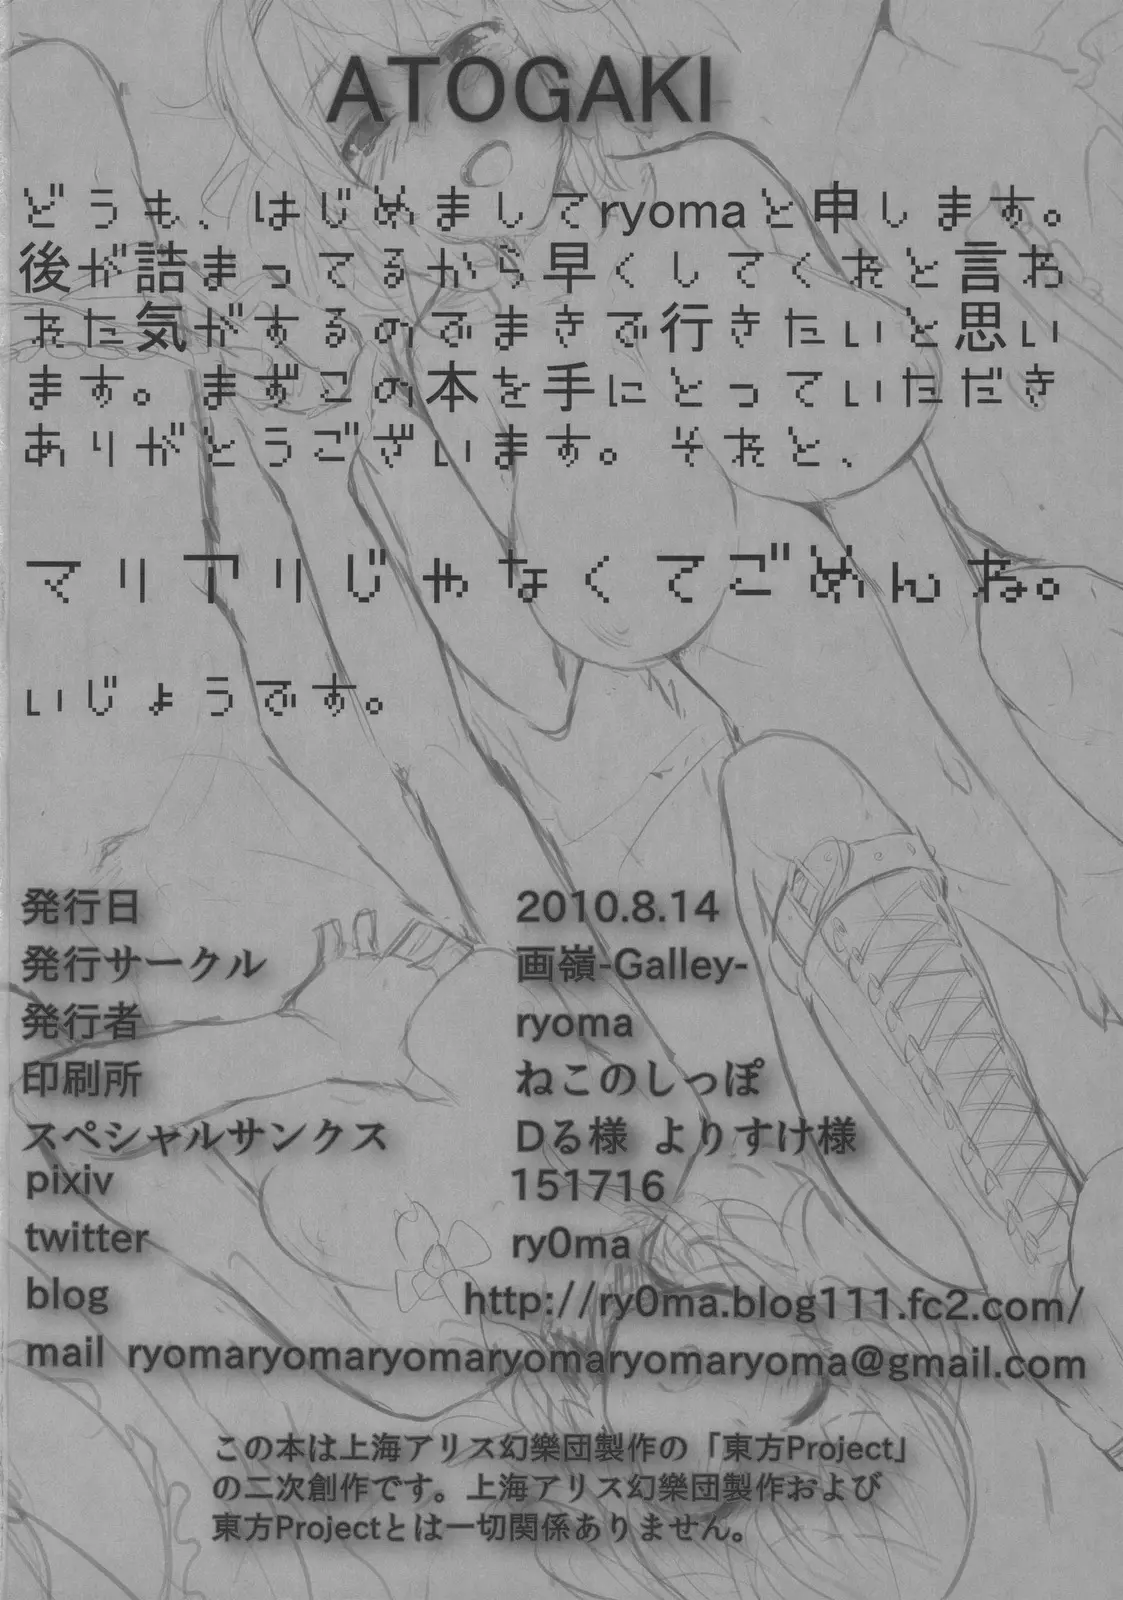 ATOGAKI
どうも、はじめましてryomaと申します。
後が詰まってるから早くしてくれと言わ
れた気がするのでまきで行きたいと思い
ます。まずこの本を手にとっていただき
ありがとうございます。それと、
マリアリじゃなくてごめんね。
いじょうです。
発行日 2010.8.14
発行サークル 画嶺-Galley-
発行者 ryoma
印刷所 ねこのしっぽ
スペシャルサンクス Dる様 よりすけ様
pixiv 151716
twitter ry0ma
blog http://ry0ma.blog111.fc2.com/
mail ryomaryomaryomaryomaryomaryoma@gmail.com
この本は上海アリス幻樂団製作の「東方Project」
の二次創作です。上海アリス幻樂団製作および
東方Projectとは一切関係ありません。